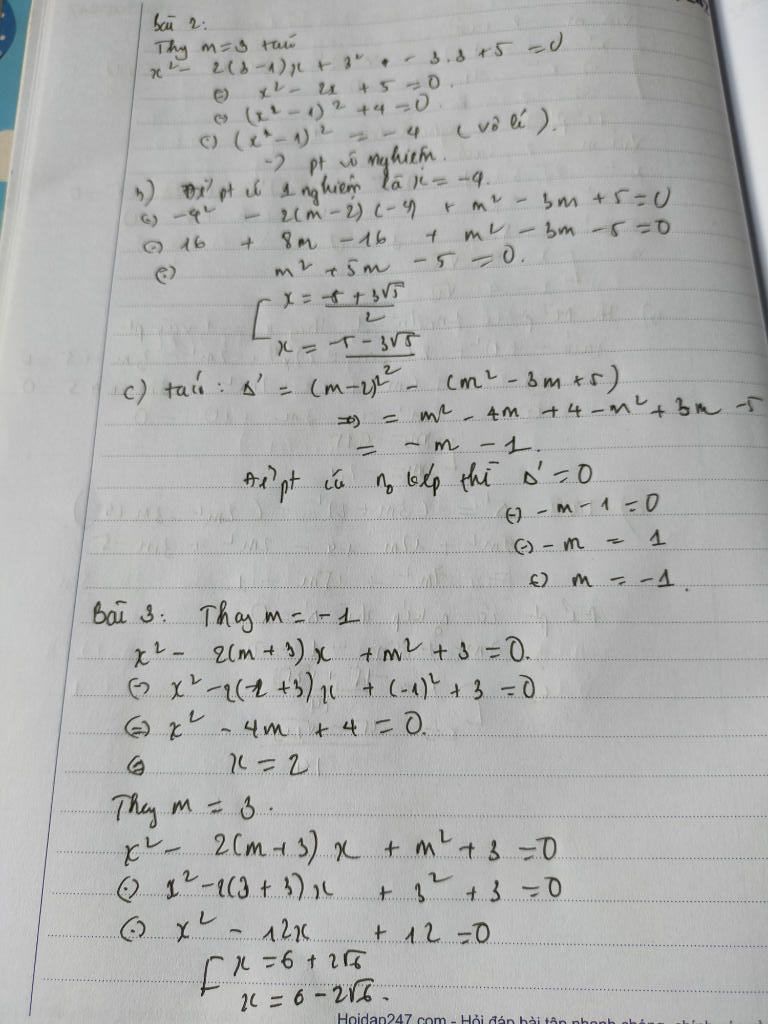 Bài 2:
Thay m = 3 ta có
x² - 2(3-1)x + 3² - 3.3 + 5 = 0
⇔ x² - 2x + 5 = 0.
⇔ (x² - 1)² + 4 = 0.
⇔ (x² - 1)² = -4 (vô lí).
→ pt vô nghiệm.
b) Để pt có 1 nghiệm là x = -4.
⇔ -4² - 2(m-2)(-4) + m² - 3m + 5 = 0
⇔ 16 + 8m - 16 + m² - 3m - 5 = 0
⇔ m² + 5m - 5 = 0.
[ x = (-5 + 3√5)/2
x = (-5 - 3√5)/2
c) ta có: Δ' = (m-2)² - (m² - 3m + 5)
⇒ = m² - 4m + 4 - m² + 3m - 5
= -m - 1.
Để pt có n₀ kép thì Δ' = 0
⇔ -m - 1 = 0
⇔ -m = 1
⇔ m = -1.
Bài 3: Thay m = -1
x² - 2(m+3)x + m² + 3 = 0.
⇔ x² - 2(-1+3)x + (-1)² + 3 = 0
⇔ x² - 4m + 4 = 0.
⇔ x = 2
Thay m = 3.
x² - 2(m+3)x + m² + 3 = 0
⇔ x² - 2(3+3)x + 3² + 3 = 0
⇔ x² - 12x + 12 = 0
[ x = 6 + 2√6
x = 6 - 2√6.
Hoidap247.com - Hỏi đáp bài tập nhanh chóng, chính